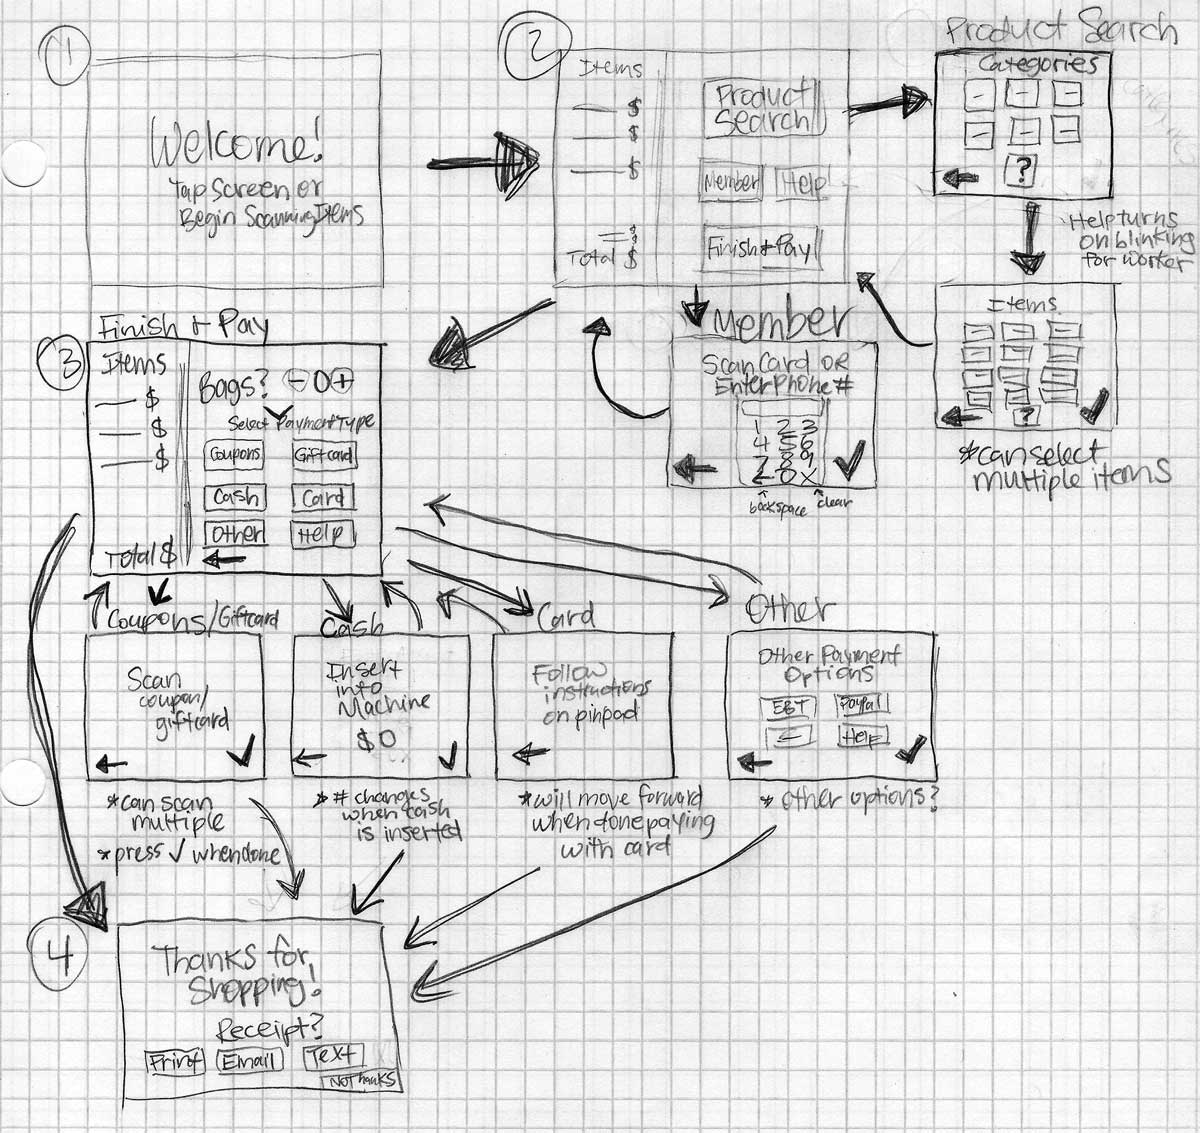 1
Welcome!
Tap Screen or
Begin Scanning Items
2
Items
$
$
$
$
$
Total $
Product
Search
Member
Help
Finish + Pay
Product Search
Categories
?
Help turns
on blinking
for worker
Items
?
*can select
multiple items
Member
Scan Card or
Enter Phone #
1 2 3
4 5 6
7 8 9
← 0 X
backspace
clear
3
Finish + Pay
Items
$
$
$
Total $
Bags? - 0 +
Select Payment Type
Coupons
Giftcard
Cash
Card
Other
Help
Coupons/Giftcard
Scan
coupon/
giftcard
*can scan
multiple
*press ✓ when done
Cash
Insert
into
Machine
$0
* # changes
when cash
is inserted
Card
Follow
instructions
on pinpad
*will move forward
when done paying
with card
Other
Other Payment
Options
EBT
PayPal
Help
* other options?
4
Thanks for
Shopping!
Receipt?
Print
Email
Text
No Thanks